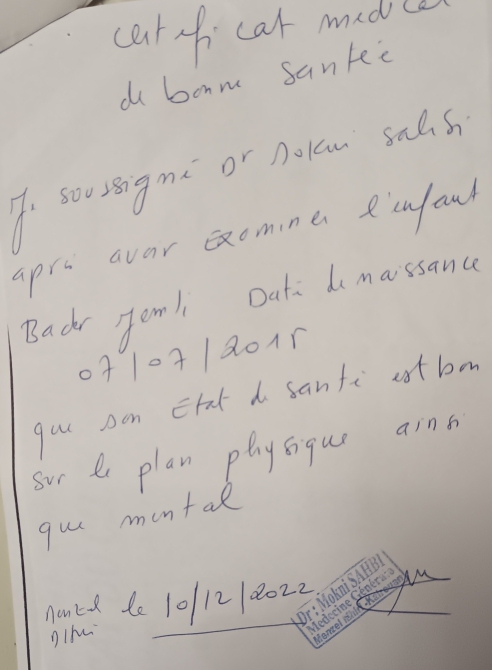 certificat medical
de bonne santée
Je soussigné Dr Mokni sahbi
apré avoir Examiner l'enfant
Bader Jemli Date de naissance
07/07/2015
que son Etat de santé est bon
sur le plan physique ainsi
que mental
Menzel le 10/12/2022
Dr: Mokni SAHBI
Medecine Générale
Menzel Kairouan